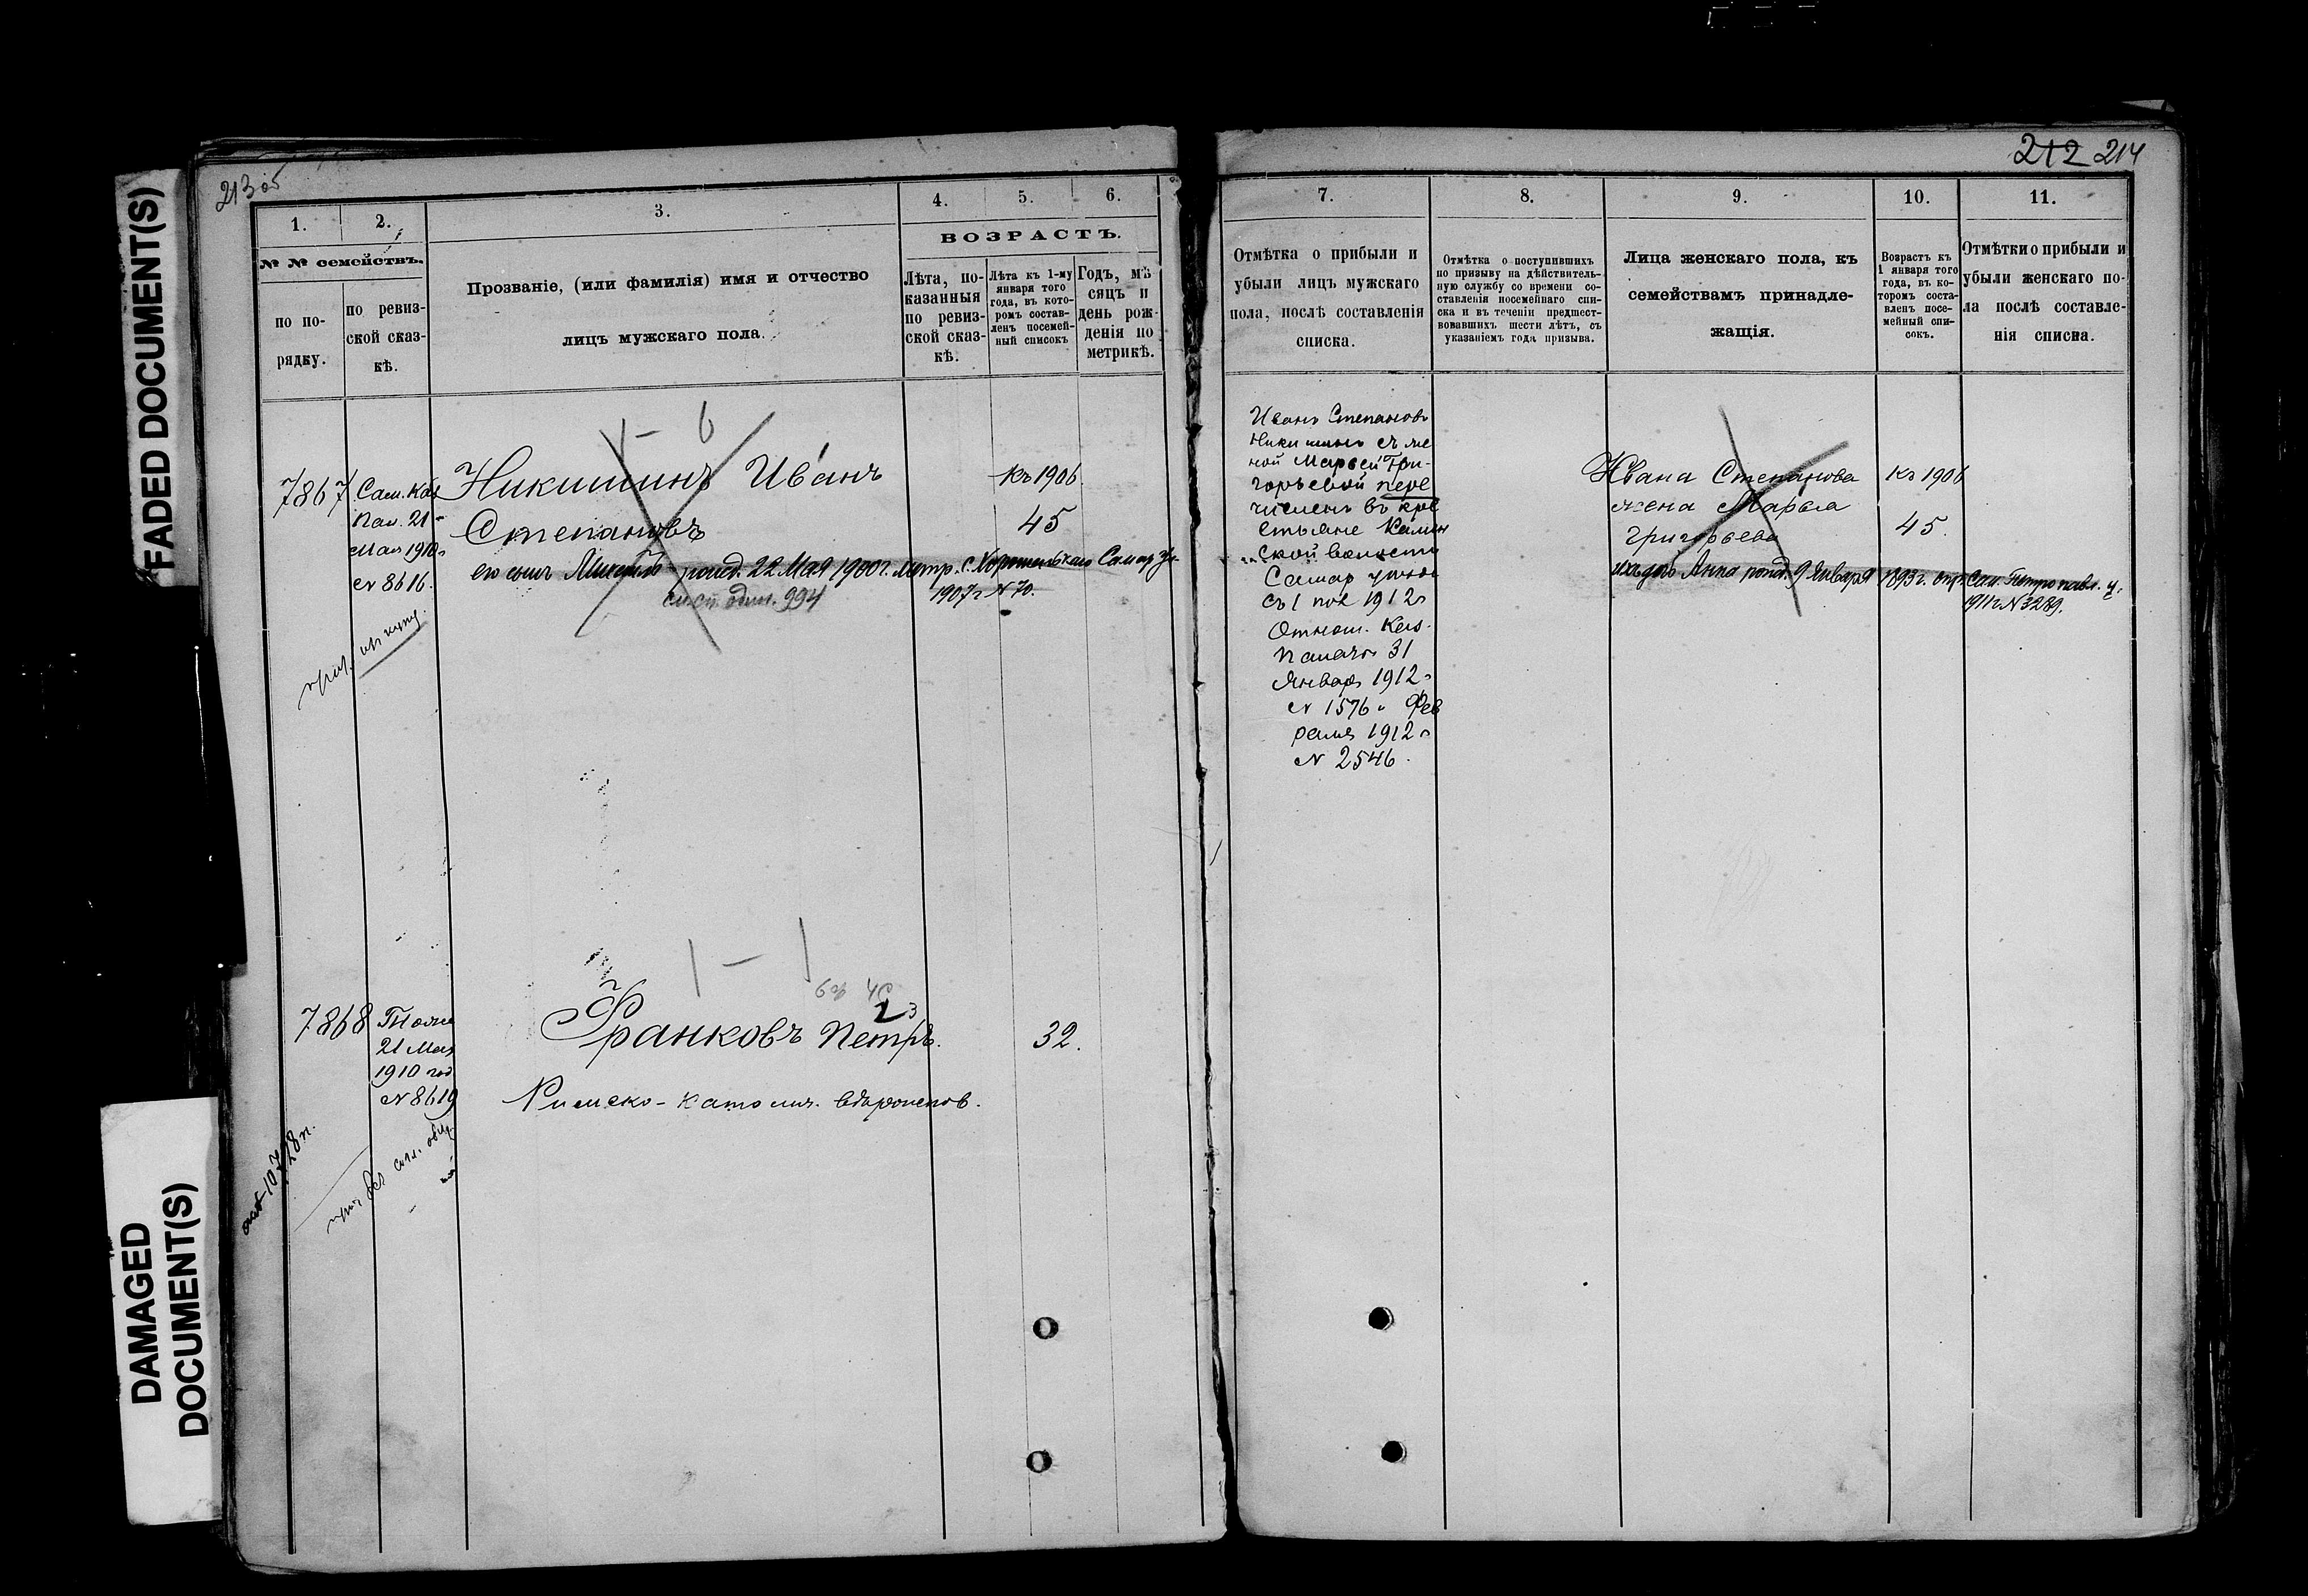 FADED DOCUMENT(S)
DAMAGED
DOCUMENT(S)
213 об
1.
2.
3.
4.
5.
6.
№ № семействъ.
по по-
рядку.
по ревиз-
ской сказ-
кѣ.
Прозваніе, (или фамилія) имя и отчество
лицъ мужскаго пола.
ВОЗРАСТЪ.
Лѣта, по-
казанныя
по ревиз-
ской сказ-
кѣ.
Лѣта къ 1-му
января того
года, въ кото-
ромъ состав-
ленъ посемей-
ный списокъ
Годъ, мѣ-
сяцъ и
день рож-
денія по
метрикѣ.
7867
Сам. Каз
Пал. 21
Мая 1910 г
№ 8616.
1 - 6
Никишинъ Иванъ
Степановъ
къ 1906
45
его сынъ рожд. 22 Мая 1900 г. метр. с. Самар. у.
1907 г № 70.
994
7868
21 Мая
1910 год
№ 8619
1 - 1
23
Франковъ Петръ.
32.
Римско-католич. вѣроисповѣд.
212 214
7.
8.
9.
10.
11.
Отмѣтка о прибыли и
убыли лицъ мужскаго
пола, послѣ составленія
списка.
Отмѣтка о поступившихъ
по призыву на дѣйствитель-
ную службу со времени со-
ставленія посемейнаго спи-
ска и въ теченіи предшест-
вовавшихъ шести лѣтъ, съ
указаніемъ года призыва.
Лица женскаго пола, къ
семействамъ принадле-
жащія.
Возрастъ къ
1 января того
года, въ ко-
торомъ соста-
вленъ посе-
мейный спи-
сокъ.
Отмѣтки о прибыли и
убыли женскаго по-
ла послѣ составле-
нія списка.
Иванъ Степановъ
Никишинъ съ же
ной Марьей Гри-
горьевой пере
численъ въ кре
стьяне Камен
ской волости
Самар уѣзда
съ 1 пол 1912 г
Отнош. Каз.
Палаты 31
Января 1912 г
№ 1576 и Фев
раля 1912 г
№ 2546.
Ивана Степанова
жена Марья
Григорьева
къ 1906
45.
ихъ дочь Анна рожд. 9 Января 1893 г. Сам. Петропавл. ц.
1911 г № 3289.